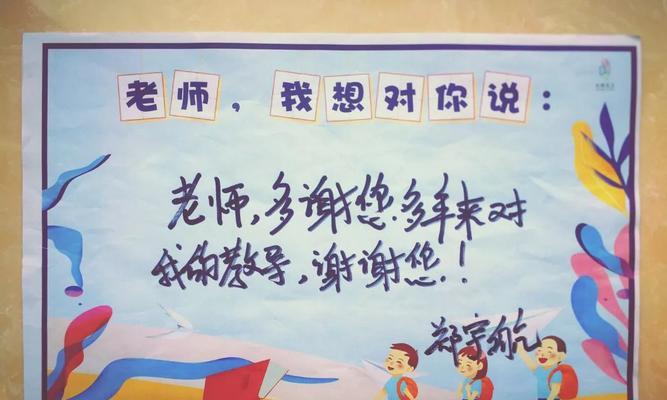 老师，我想对你说：
老师，多谢您多年来对
我的教导，谢谢您！
郑宇航